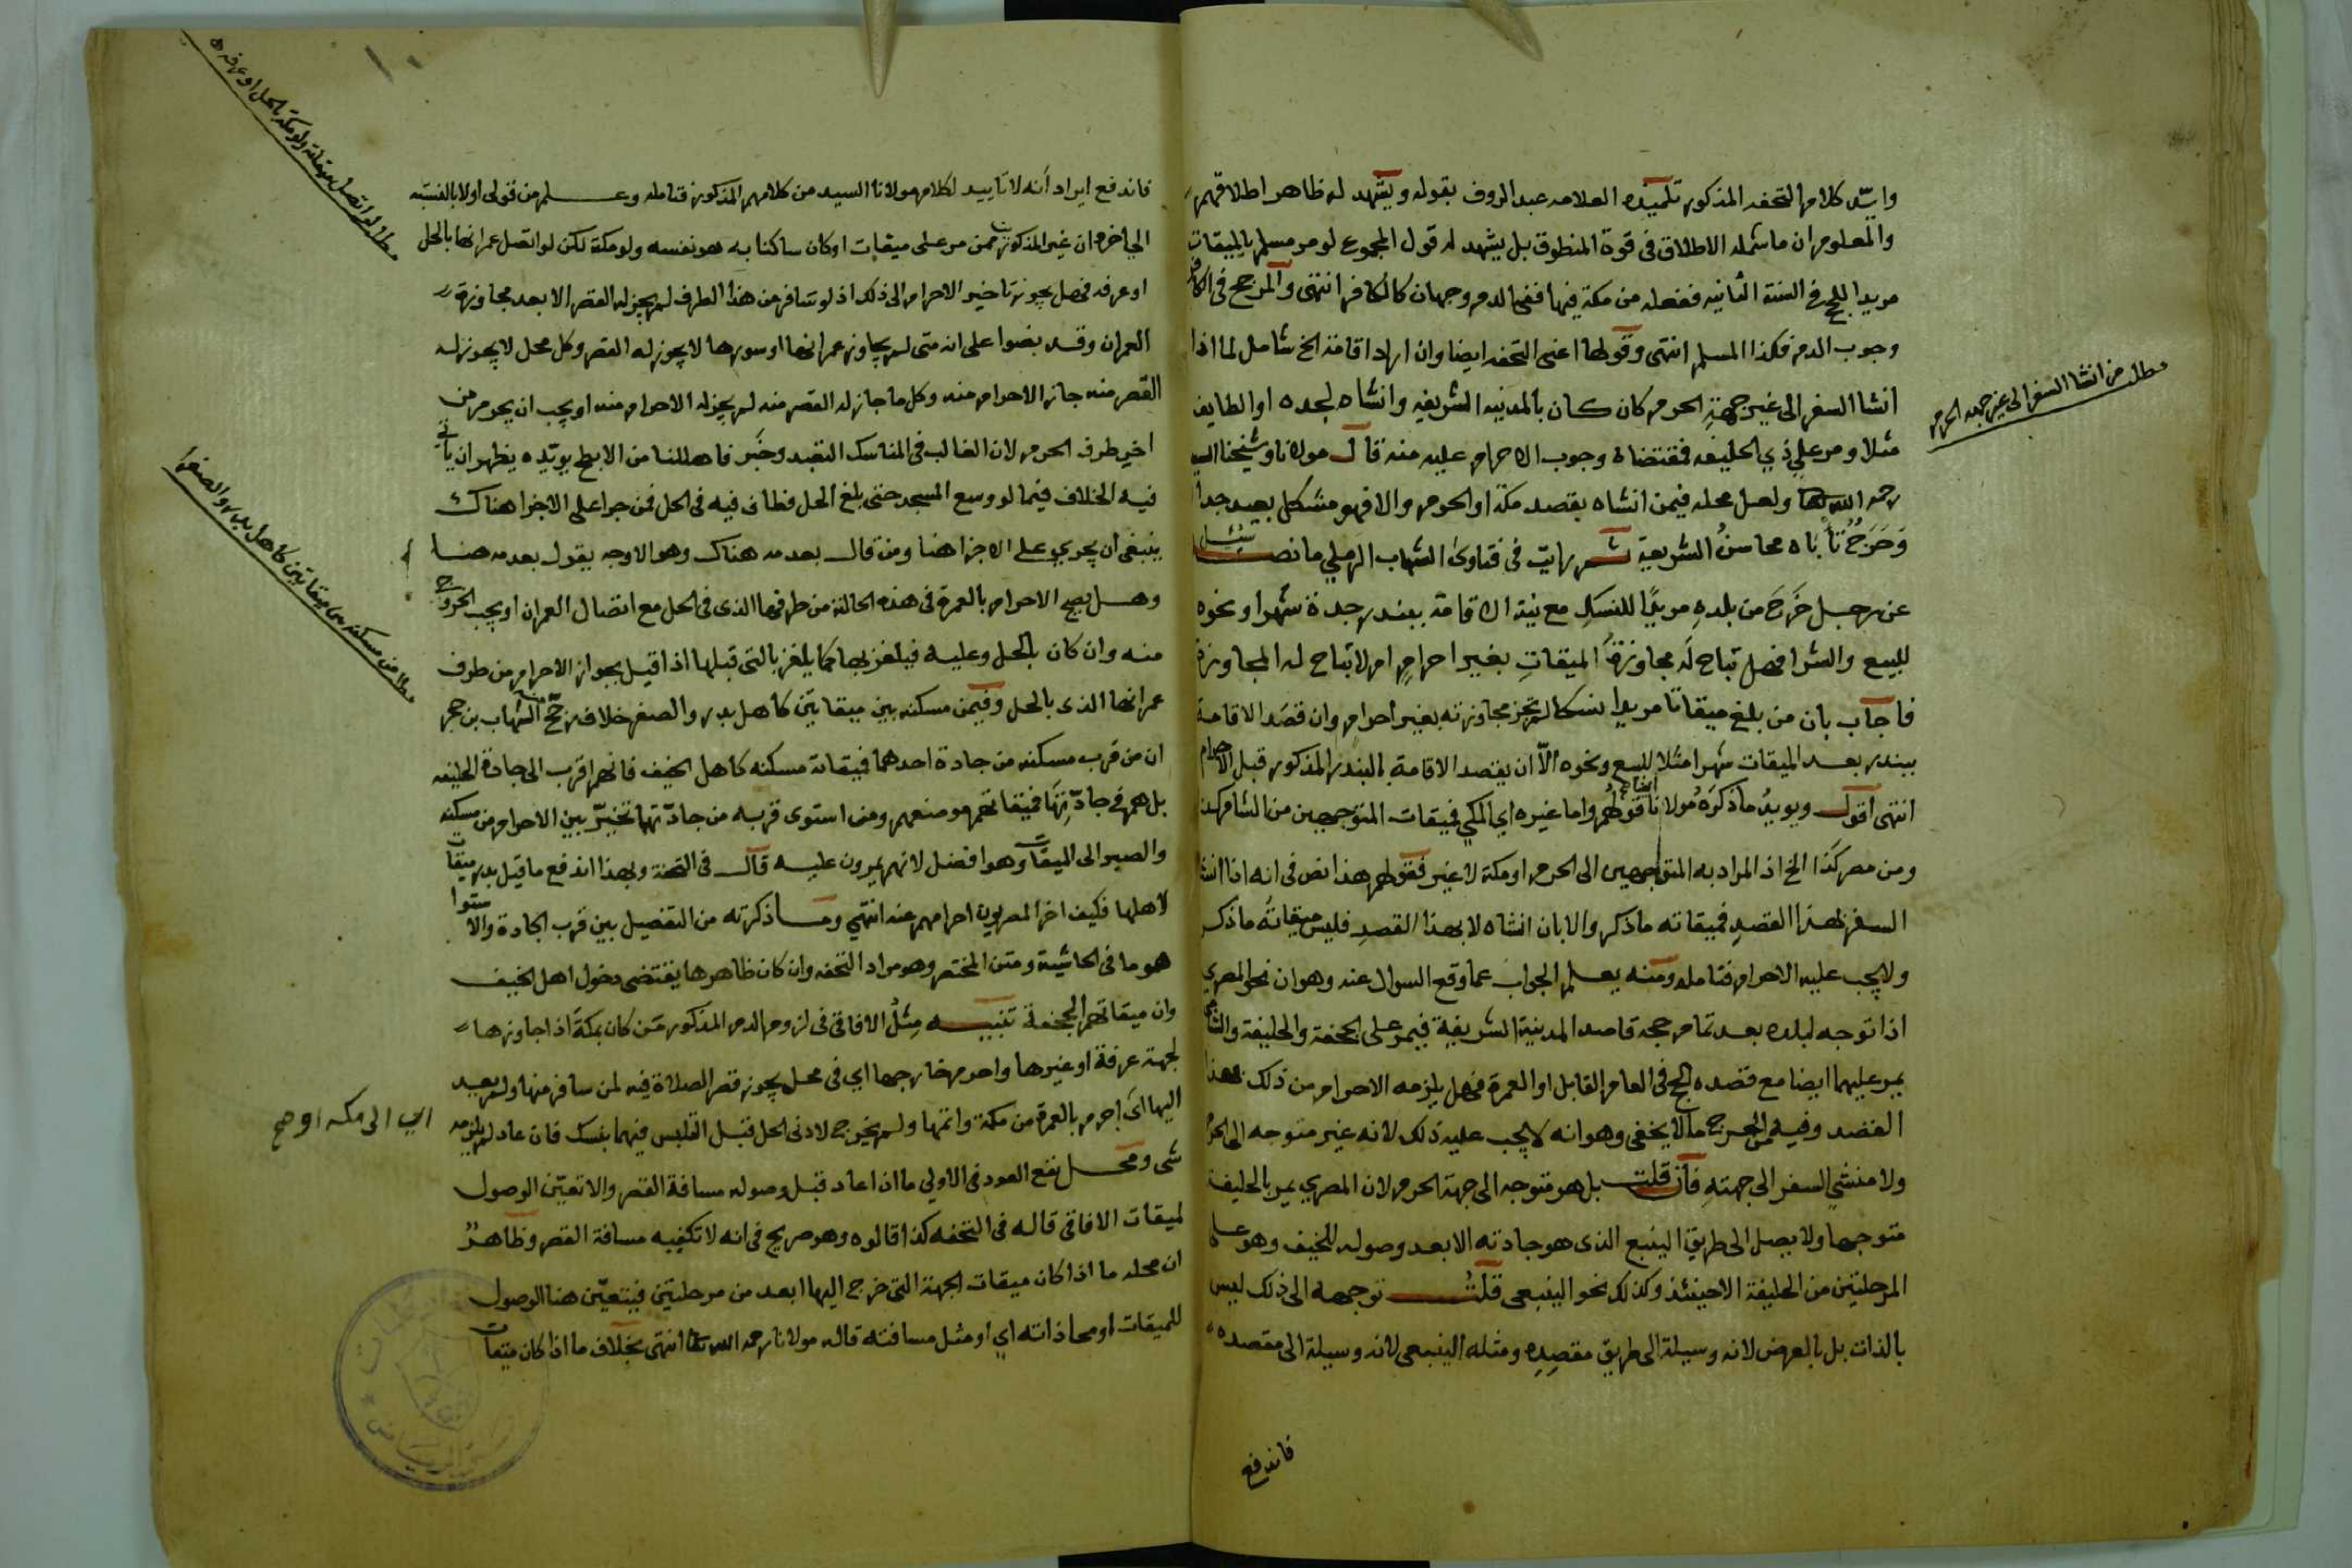 وايّد كلام التحفه المذكور تلميذه العلامه عبد الروف بقوله ويشهد له ظاهر اطلاقهم
والمعلوم ان ما شمله الاطلاق فى قوة المنطوق بل يشهد له قول المجموع لو مر مسلم بالميقات
مريدا للحج فى السنة الثانيه ففعله من مكة فيها ففى الدم وجهان كالكافر انتهى والمرجح فى الكافر
وجوب الدم فكذا المسلم انتهى وقولها اعنى التحفه ايضا وان اراد اقامة الخ شامل لما اذا
انشا السفر الى غير جهة الحرم كان كان بالمدينه الشريفه وانشاه لجده او الطايف
مثلا ومر على ذي الحليفه فمقتضاه وجوب الاحرام عليه منه قال مولانا وشيخنا السيد
رحمه الله تعالى ولعل محله فيمن انشاه بقصد مكة او الحرم والا فهو مشكل بعيد جدا
وحرج تاباه محاسن الشريعة ثم رايت فى فتاوى الشهاب الرملي ما نصه سئل
عن رجل خرج من بلده مريدًا للنسك مع نية الاقامة ببندر جدة شهرا ونحوه
للبيع والشرا فهل تباح له مجاوزة الميقات بغير احرام ام لا تباح له المجاوزة
فاجاب بان من بلغ ميقاتا مريدا نسكا لم تجز مجاوزته بغير احرام وان قصد الاقامة
ببندر بعد الميقات شهرا مثلا للبيع ونحوه الّا ان يقصد الاقامة بالبندر المذكور قبل الاحرام
انتهى اقول ويويد ما ذكره مولانا ايضا قولهم واما غيره اي المكي فميقات المتوجهين من الشام كذا
ومن مصر كذا الخ اذ المراد به المتوجهين الى الحرم او مكة لا غير فقولهم هذا نص فى انه اذا انشا
السفر لهذا القصد فميقاته ما ذكر والا بان انشاه لا بهذا القصد فليس ميقاته ما ذكر
ولا يجب عليه الاحرام فتامله ومنه يعلم الجواب عما وقع السوال عنه وهو ان نحو المصري
اذا توجه لبلده بعد تمام حجه قاصد المدينة الشريفة فيمر على الجحفة والحليفة والشامي
يمر عليهما ايضا مع قصده الحج فى العام القابل او العمرة فهل يلزمه الاحرام من ذلك لهذا
القصد وفيه من الحرج ما لا يخفى وهو انه لا يجب عليه ذلك لانه غير متوجه الى الحرم
ولا منشي السفر الى جهته فان قلت بل هو متوجه الى جهة الحرم لان المصري يمر بالحليفة
متوجها ولا يصل الى طريق الينبع الذى هو جادته الا بعد وصوله للخيف وهو على
المرحلتين من الحليفة الا حينئذ وكذلك نحو الينبعى قلت توجهه الى ذلك ليس
بالذات بل بالعرض لانه وسيلة الى طريق مقصده ومثله الينبعى لانه وسيلة الى مقصده
فاندفع
مطلب من انشا السفر الى غير جهة الحرم
فاندفع ايراد انه لا تاييد لكلام مولانا السيد من كلامهم المذكور فتامله وعلم من قولى اولا بالنسبة
الى اخره ان غير المذكورين ممن مر على ميقات او كان ساكنا به هو نفسه ولو مكة لكن لو اتصل عمرانها بالحل
او عرفه فهل يجوز تاخير الاحرام الى ذلك اذ لو سافر من هذا الطرف لم يجز له القصر الا بعد مجاوزة
العمران وقد نصوا على انه متى لم يجاوز عمرانها او سورها لا يجوز له القصر وكل محل لا يجوز له
القصر منه جاز الاحرام منه وكل ما جاز له القصر منه لم يجز له الاحرام منه او يجب ان يحرم من
اخير طرف الحرم لان الغالب فى المناسك التعبد وخبر فاهللنا من الابطح يويّده يظهر ان ياتى
فيه الخلاف فيما لو وسع المسجد حتى بلغ الحل فطاف فيه فى الحل فمن جرا على الاجزا هناك
ينبغى ان يجرى على الاجزا هنا ومن قال بعدمه هناك وهو الاوجه يقول بعدمه هنا
وهل يصح الاحرام بالعمرة فى هذه الحالة من طرفها الذى فى الحل مع اتصال العمران او يجب الخروج
منه وان كان بالحل وعليه فيلغز بها كما يلغز بالتى قبلها اذا قيل بجواز الاحرام من طرف
عمرانها الذى بالحل وفيمن مسكنه بين ميقاتين كاهل بدر والصفرا خلاف رجّح الشهاب بن حجر
ان من قرب مسكنه من جادة احدهما فميقاته مسكنه كاهل الخيف فانهم اقرب الى جادة الحليفه
بل هم فى جادّتها فميقاتهم موضعهم ومن استوى قربه من جادّتهما تخيّر بين الاحرام من مسكنه
والصبر الى الميقات وهو افضل لانهم يمرون عليه قال فى التحفة وبهذا اندفع ما قيل بدر ميقات
لاهلها فكيف اخر المصريون احرامهم عنه انتهى وما ذكرته من التفصيل بين قرب الجادة والاستوا
هو ما فى الحاشية ومتن المختصر وهو مراد التحفه وان كان ظاهرها يقتضى دخول اهل الخيف
وان ميقاتهم الجحفة تنبيه مثل الافاقى فى لزوم الدم المذكور من كان بمكة اذا جاوزها
لجهة عرفة او غيرها واحرم خارجها اي فى محل يجوز قصر الصلاة فيه لمن سافر منها ولم يعد
اليها اى احرم بالعمرة من مكة واتمها ولم يخرج لادنى الحل قبل التلبس فيهما بنسك فان عاد لم يلزمه
شى ومحل نفع العود فى الاولى ما اذا عاد قبل وصوله مسافة القصر والا تعيّن الوصول
لميقات الافاقى قاله فى التحفه كذا قالوه وهو صريح فى انه لا تكفيه مسافة القصر وظاهر
ان محله ما اذا كان ميقات الجهة التى خرج اليها ابعد من مرحلتين فيتعيّن هنا الوصول
للميقات او محاذاته اي او مثل مسافته قاله مولانا رحمه الله تعالى انتهى بخلاف ما اذا كان ميقات
مطلب لو اتصل عمران مكة بالحل او عرفه
مطلب من مسكنه بين ميقاتين كاهل بدر والصفرا
اي الى مكه او صح